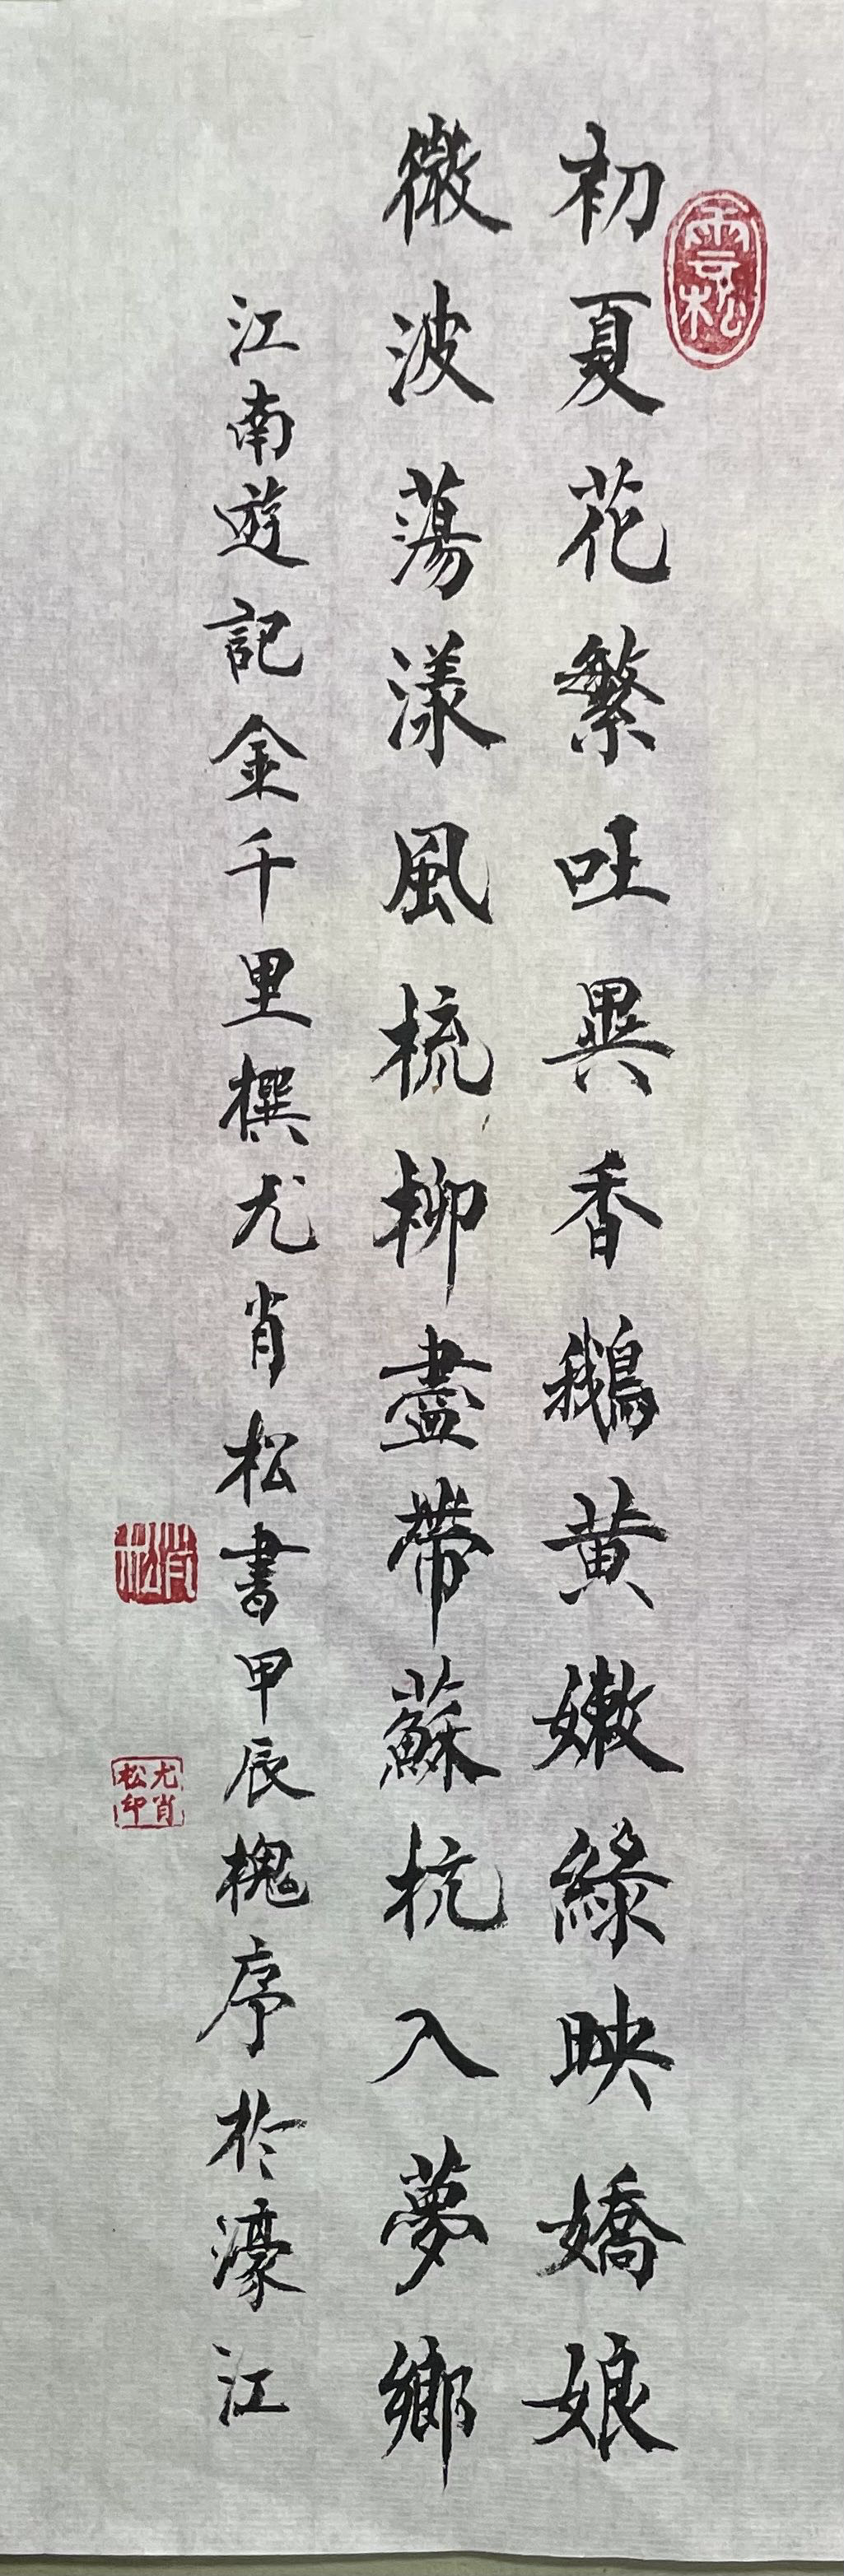 雲松
初夏花繁吐異香鵝黄嫩綠映嬌娘
微波蕩漾風梳柳盡帶蘇杭入夢鄉
江南遊記金千里撰尤肖松書甲辰槐序於濠江
肖松
尤肖松印